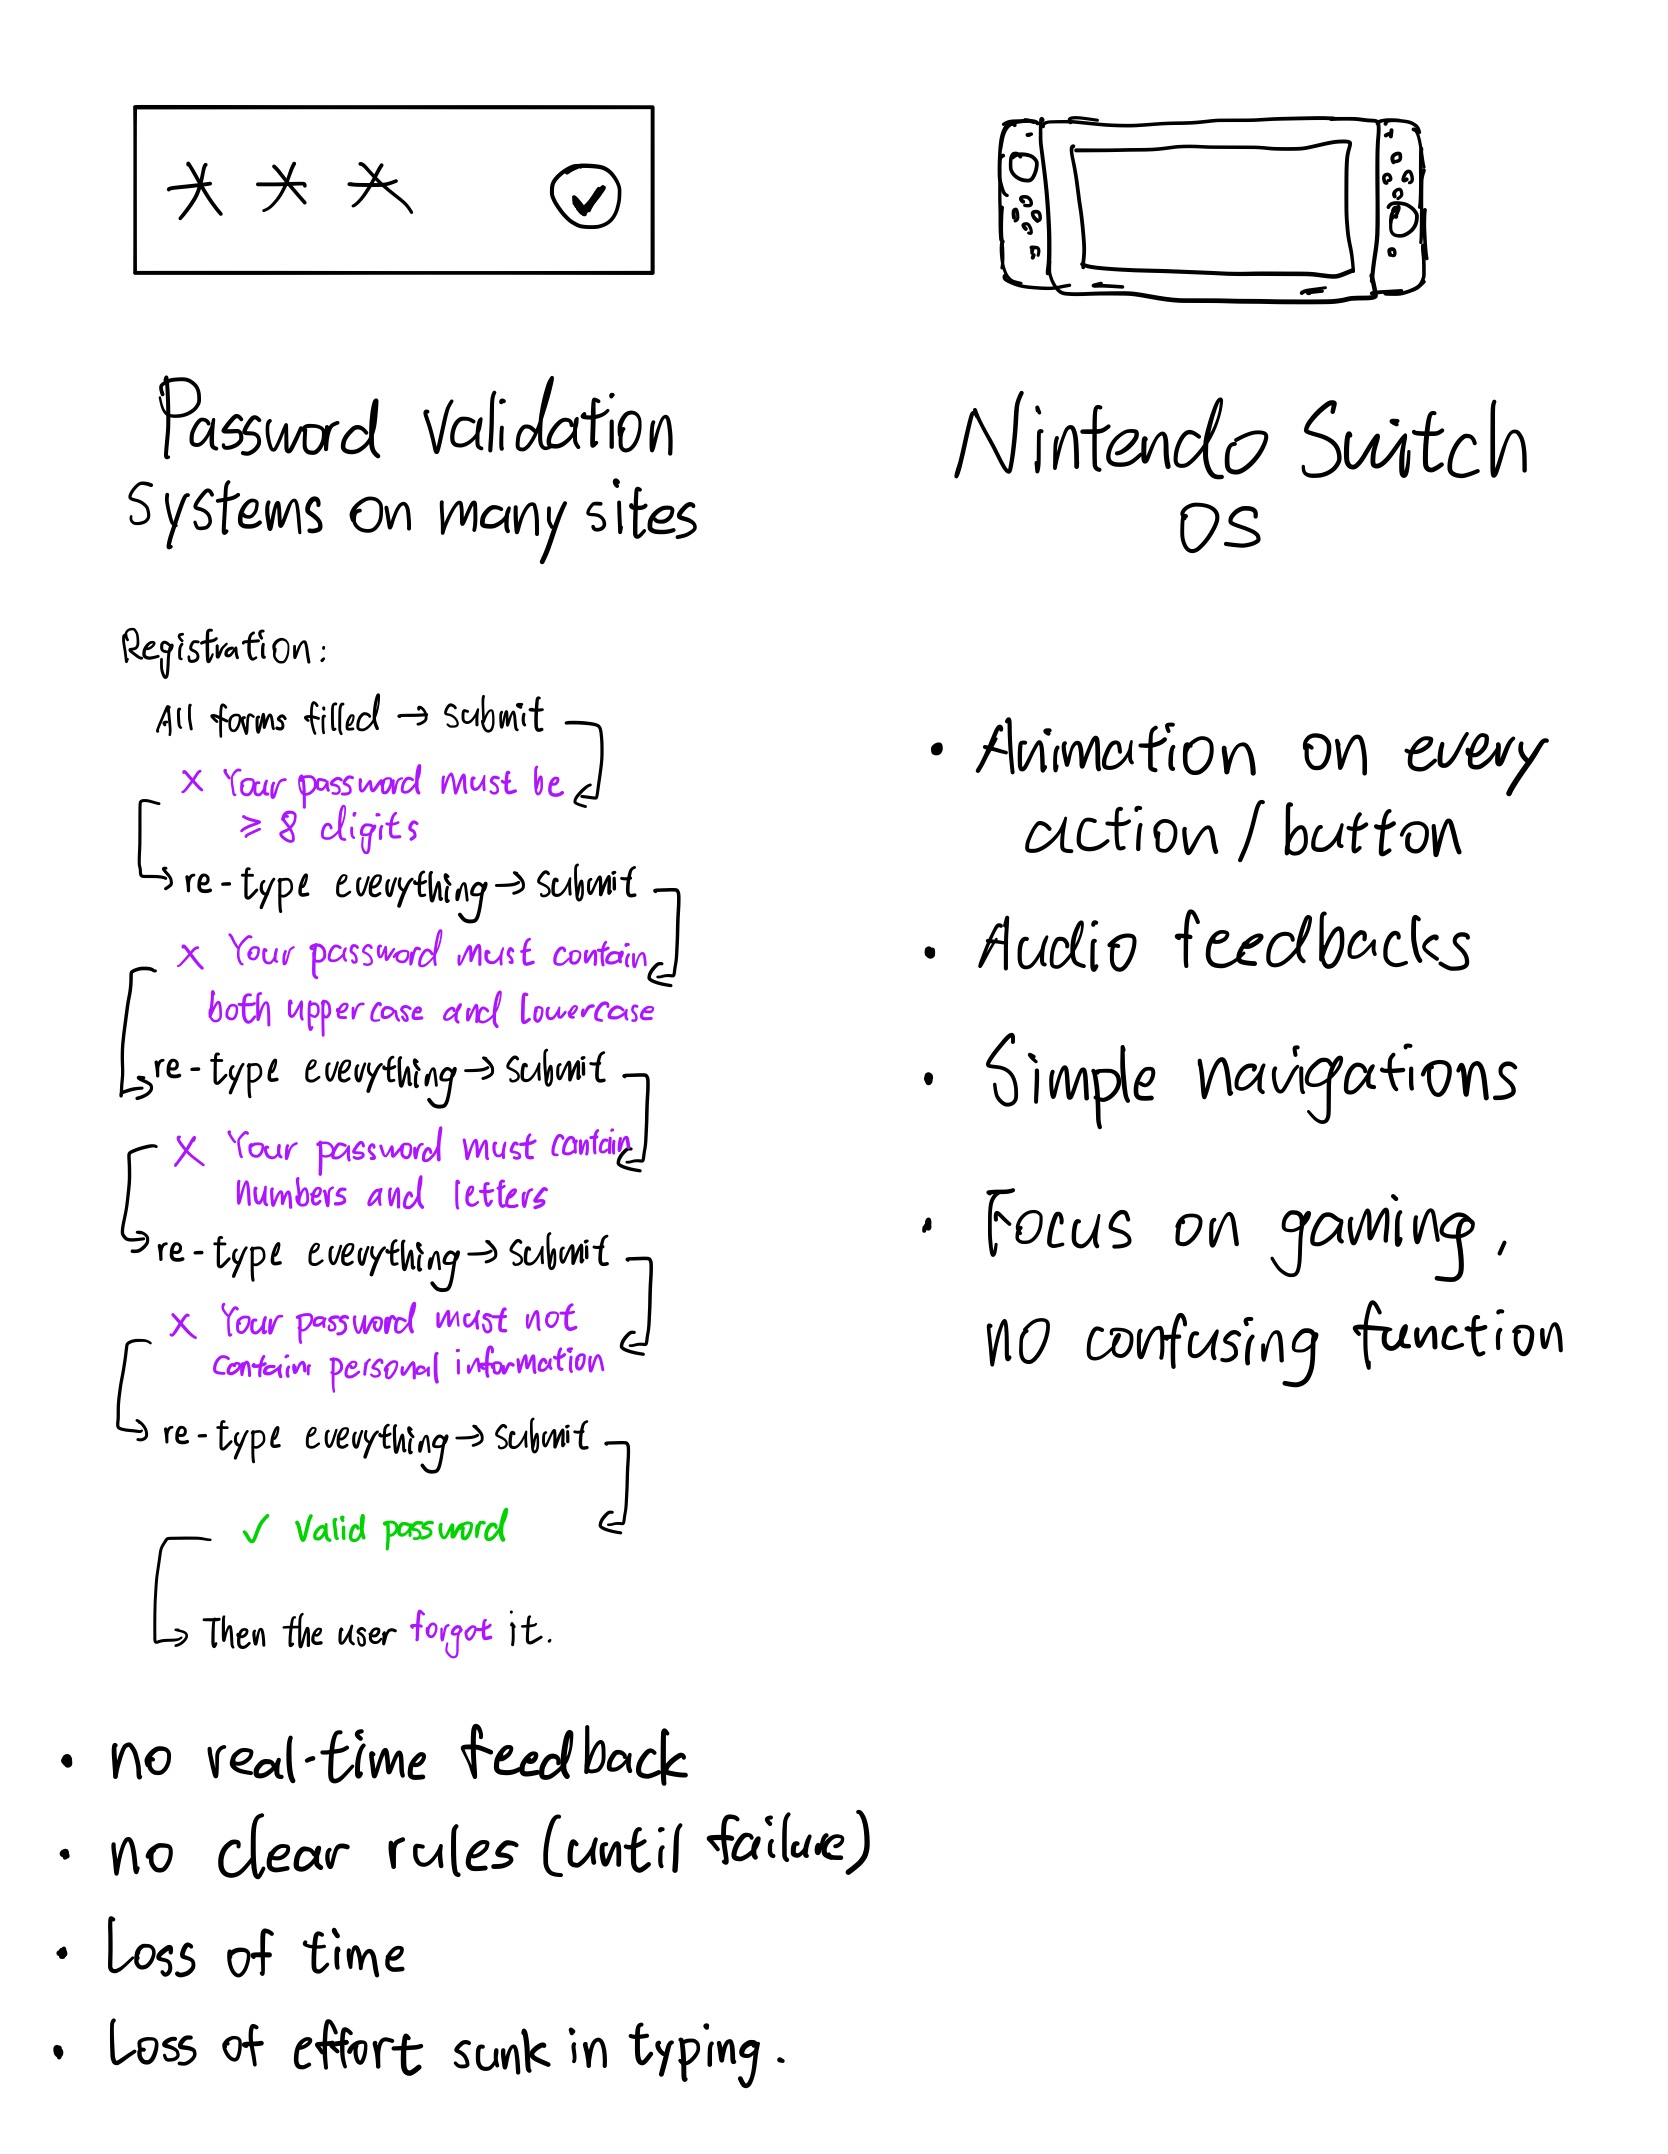 * * *
Password validation
systems on many sites
Registration:
All forms filled → submit
x Your password must be
≥ 8 digits
re-type everything → submit
x Your password must contain
both uppercase and lowercase
re-type everything → submit
x Your password must contain
numbers and letters
re-type everything → submit
x Your password must not
contain personal information
re-type everything → submit
✓ Valid password
Then the user forgot it.
• no real-time feedback
• no clear rules (until failure)
• Loss of time
• Loss of effort sunk in typing.
Nintendo Switch
OS
• Animation on every
action / button
• Audio feedbacks
• Simple navigations
• Focus on gaming,
no confusing function